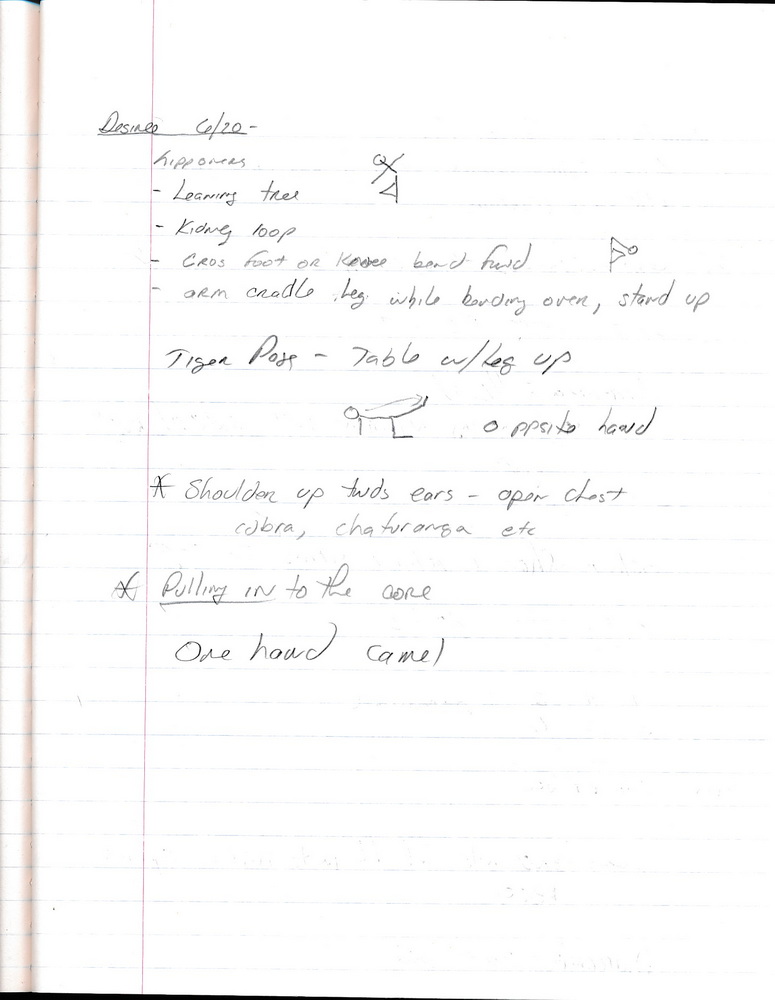 Desiree 6/20-
hipponers
- Leaning tree
- Kidney loop
- Cros foot or Knee bend fwd
- arm cradle leg while bending over, stand up
Tiger Pose - Table w/leg up
oppsite hand
* Shoulder up twds ears - open chest
cobra, chaturanga etc
* Pulling in to the core
One hand camel